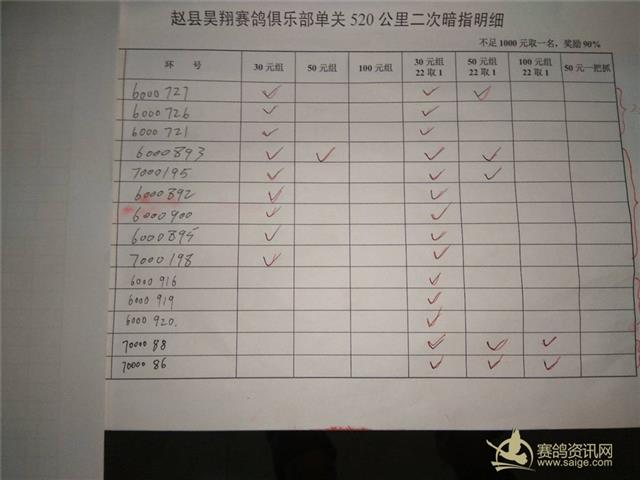 赵县昊翔赛鸽俱乐部单关 520 公里二次暗指明细
不足 1000 元取一名，奖励 90%
环 号 30 元组 50 元组 100 元组 30 元组 22 取 1 50 元组 22 取 1 100 元组 22 取 1 50 元一把抓
6000 727 ✓ ✓ ✓
6000 726 ✓ ✓
6000 721 ✓ ✓
6000 893 ✓ ✓ ✓ ✓
7000 195 ✓ ✓ ✓
6000 892 ✓ ✓
6000 900 ✓ ✓
6000 895 ✓ ✓
7000 198 ✓ ✓
6000 916 ✓
6000 919 ✓
6000 920. ✓
70000 88 ✓ ✓ ✓
70000 86 ✓ ✓ ✓
赛鸽资讯网
www.saige.com